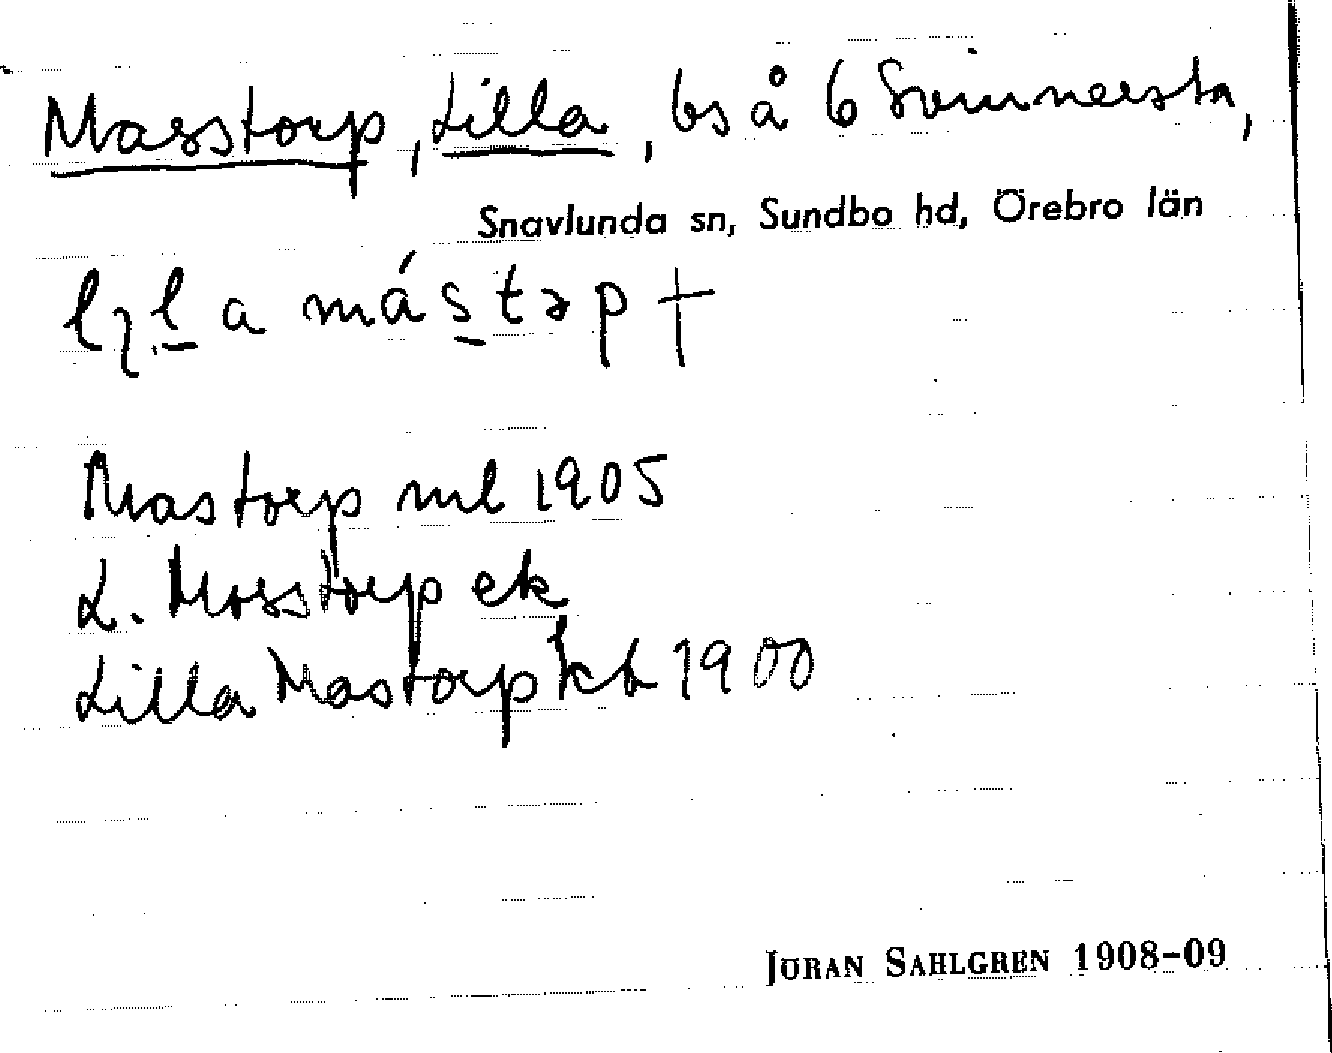 Masstorp, Lilla, bs å 6 Svinnersta,
Snavlunda sn, Sundbo hd, Örebro län
a mástəp †
Mastorp ml 1905
L. Mosstorp ek
Lilla Mastorp kb 1900
JÖRAN SAHLGREN 1908-09